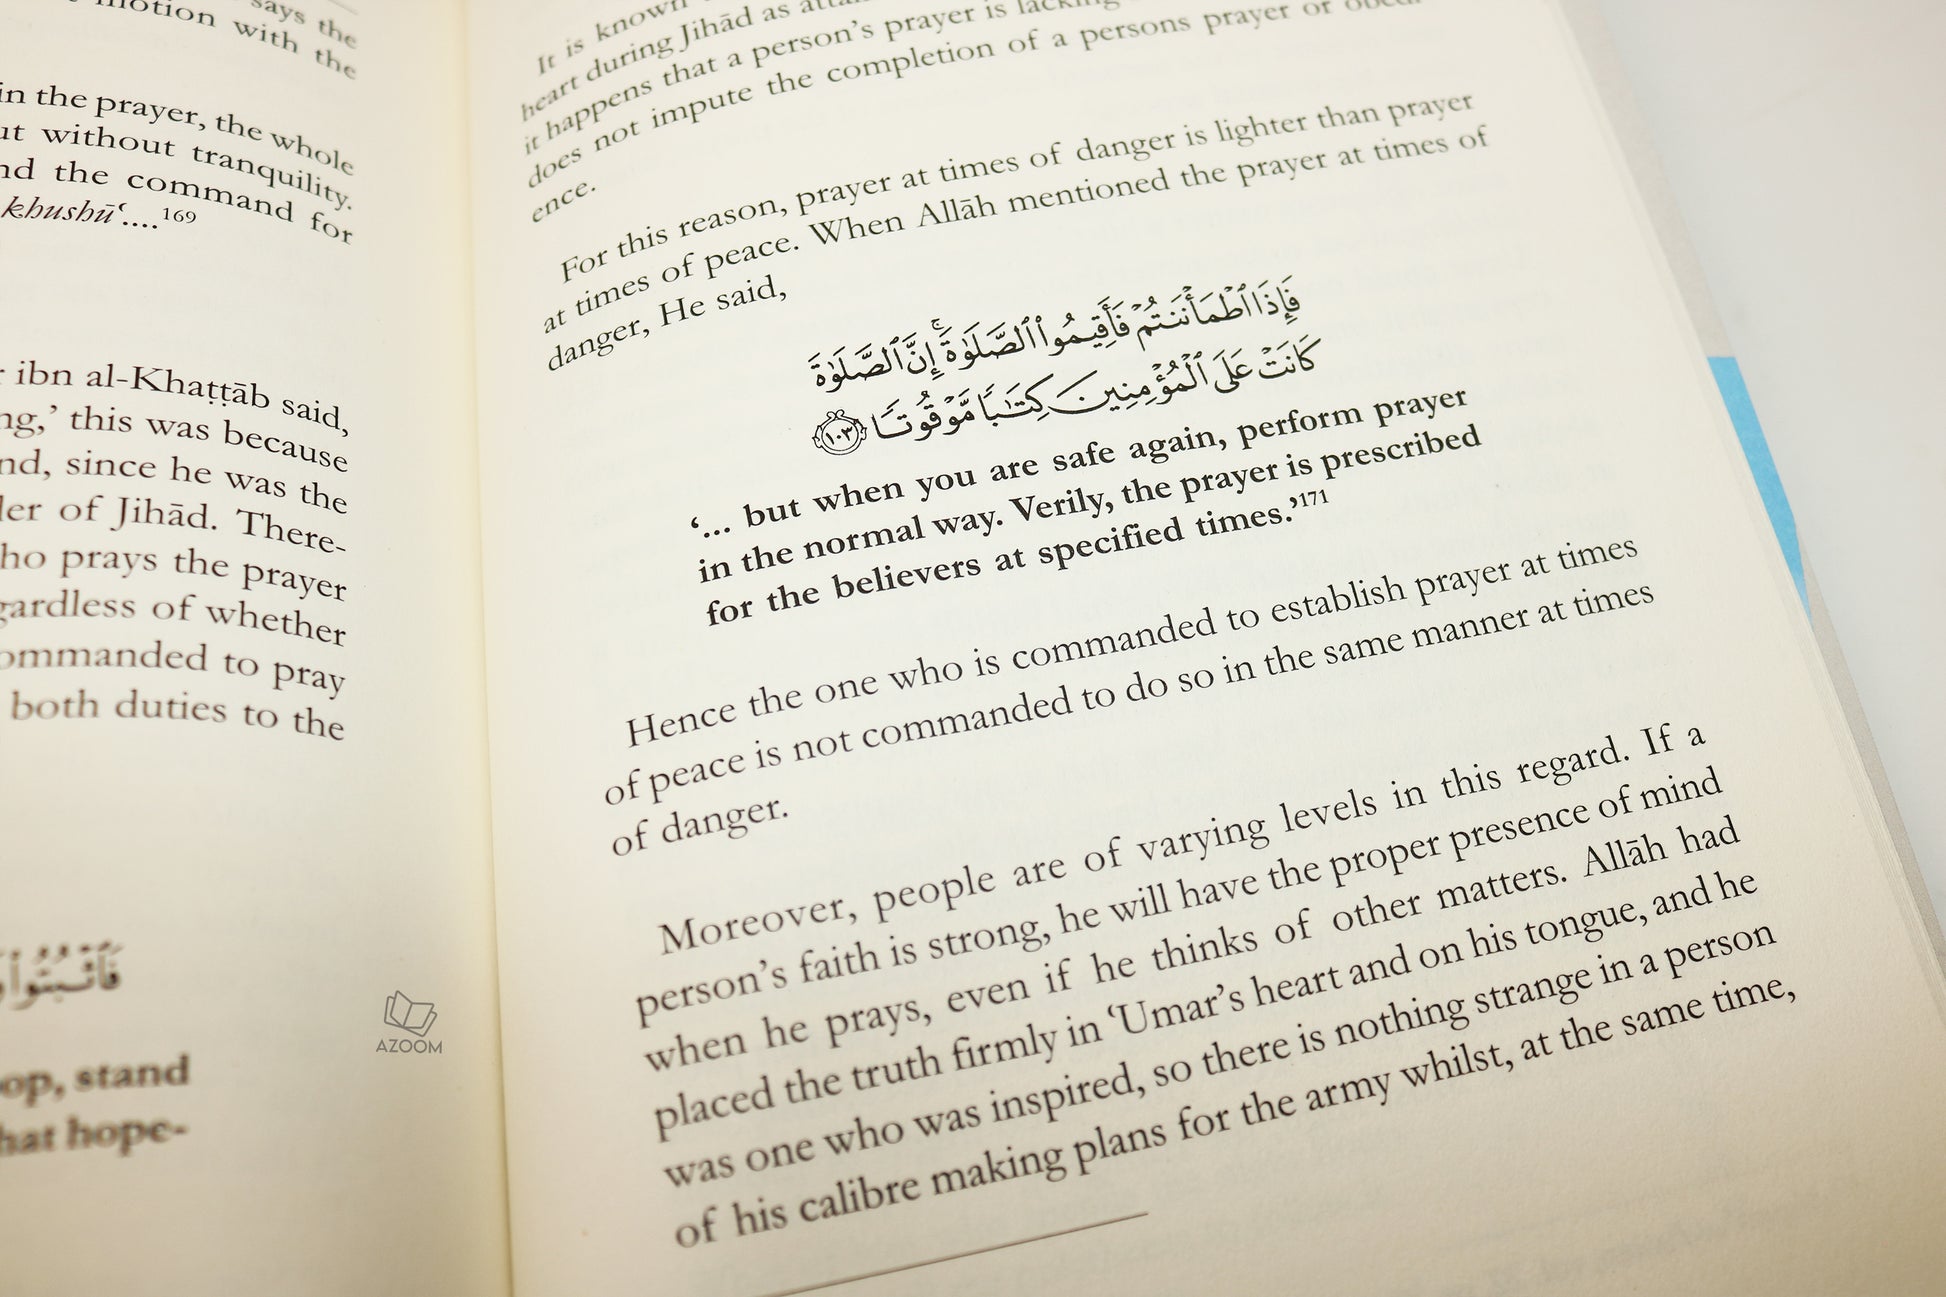 says the
motion with the
in the prayer, the whole
without tranquility.
the command for
khushū‘....169
ibn al-Khaṭṭāb said,
this was because
since he was the
of Jihād. There-
prays the prayer
of whether
to pray
both duties to the
stand
hope-
AZOOM
It is known
heart during Jihād as
it happens that a person’s prayer is
does not impute the completion of a persons prayer or
ence.
For this reason, prayer at times of danger is lighter than prayer
at times of peace. When Allāh mentioned the prayer at times of
danger, He said,
فَإِذَا ٱطْمَأْنَنتُمْ فَأَقِيمُوا۟ ٱلصَّلَوٰةَ ۚ إِنَّ ٱلصَّلَوٰةَ
كَانَتْ عَلَى ٱلْمُؤْمِنِينَ كِتَـٰبًا مَّوْقُوتًا ١٠٣
‘... but when you are safe again, perform prayer
in the normal way. Verily, the prayer is prescribed
for the believers at specified times.’171
Hence the one who is commanded to establish prayer at times
of peace is not commanded to do so in the same manner at times
of danger.
Moreover, people are of varying levels in this regard. If a
person’s faith is strong, he will have the proper presence of mind
when he prays, even if he thinks of other matters. Allāh had
placed the truth firmly in ‘Umar’s heart and on his tongue, and he
was one who was inspired, so there is nothing strange in a person
of his calibre making plans for the army whilst, at the same time,